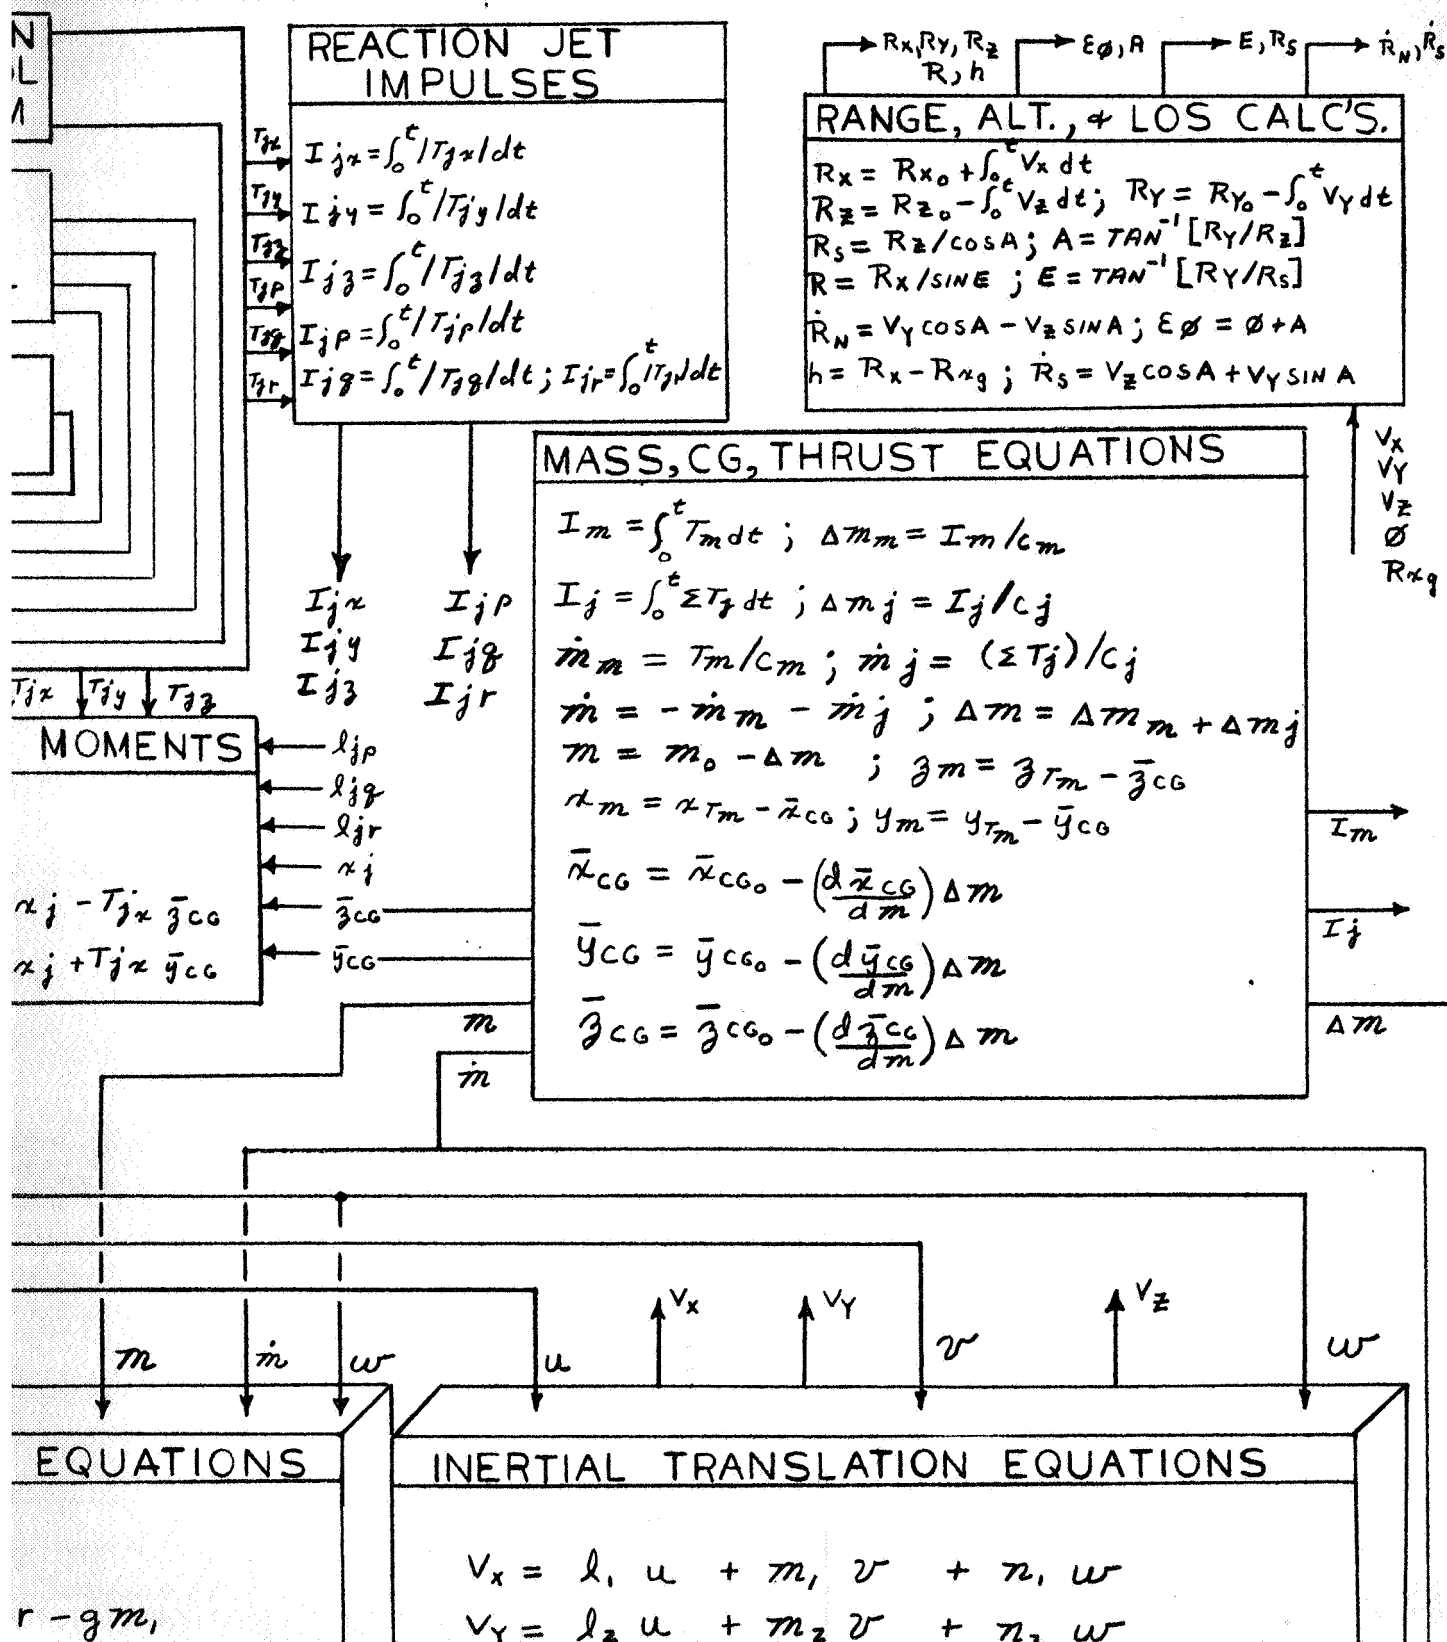 N
OL
M
REACTION JET
IMPULSES
Tjx
Tjy
Tjz
Tjp
Tjq
Tjr
Ijx = ∫₀ᵗ /Tjx/dt
Ijy = ∫₀ᵗ /Tjy/dt
Ijz = ∫₀ᵗ /Tjz/dt
Ijp = ∫₀ᵗ /Tjp/dt
Ijq = ∫₀ᵗ /Tjq/dt ; Ijr = ∫₀ᵗ /Tjr/dt
Rx, RY, Rz
R, h
εø, A
E, Rs
Ṙɴ, Ṙs
RANGE, ALT., & LOS CALC'S.
Rx = Rx₀ + ∫₀ᵗ Vx dt
Rz = Rz₀ - ∫₀ᵗ Vz dt; RY = RY₀ - ∫₀ᵗ VY dt
Rs = Rz/cosA; A = TAN⁻¹[RY/Rz]
R = Rx/SINE ; E = TAN⁻¹[RY/Rs]
Ṙɴ = VY COSA - Vz SINA; εø = ø + A
h = Rx - Rxg ; Ṙs = Vz COSA + VY SIN A
Vx
VY
Vz
ø
Rxg
Ijx
Ijy
Ijz
Ijp
Ijq
Ijr
MASS, CG, THRUST EQUATIONS
Im = ∫₀ᵗ Tm dt ; Δmm = Im/cm
Ij = ∫₀ᵗ ΣTj dt ; Δmj = Ij/cj
ṁm = Tm/cm ; ṁj = (ΣTj)/cj
ṁ = -ṁm - ṁj ; Δm = Δmm + Δmj
m = m₀ - Δm ; zm = zTm - z̄CG
xm = xTm - x̄CG ; ym = yTm - ȳCG
x̄CG = x̄CG₀ - (dx̄CG/dm) Δm
ȳCG = ȳCG₀ - (dȳCG/dm) Δm
z̄CG = z̄CG₀ - (dz̄CG/dm) Δm
Im
Ij
Δm
Tjx
Tjy
Tjz
MOMENTS
ljp
ljq
ljr
xj
z̄CG
ȳCG
xj - Tjx z̄CG
xj + Tjx ȳCG
m
ṁ
m
ṁ
w
u
Vx
VY
v
Vz
w
EQUATIONS
r - gm₁
INERTIAL TRANSLATION EQUATIONS
Vx = l₁ u + m₁ v + n₁ w
VY = l₂ u + m₂ v + n₂ w